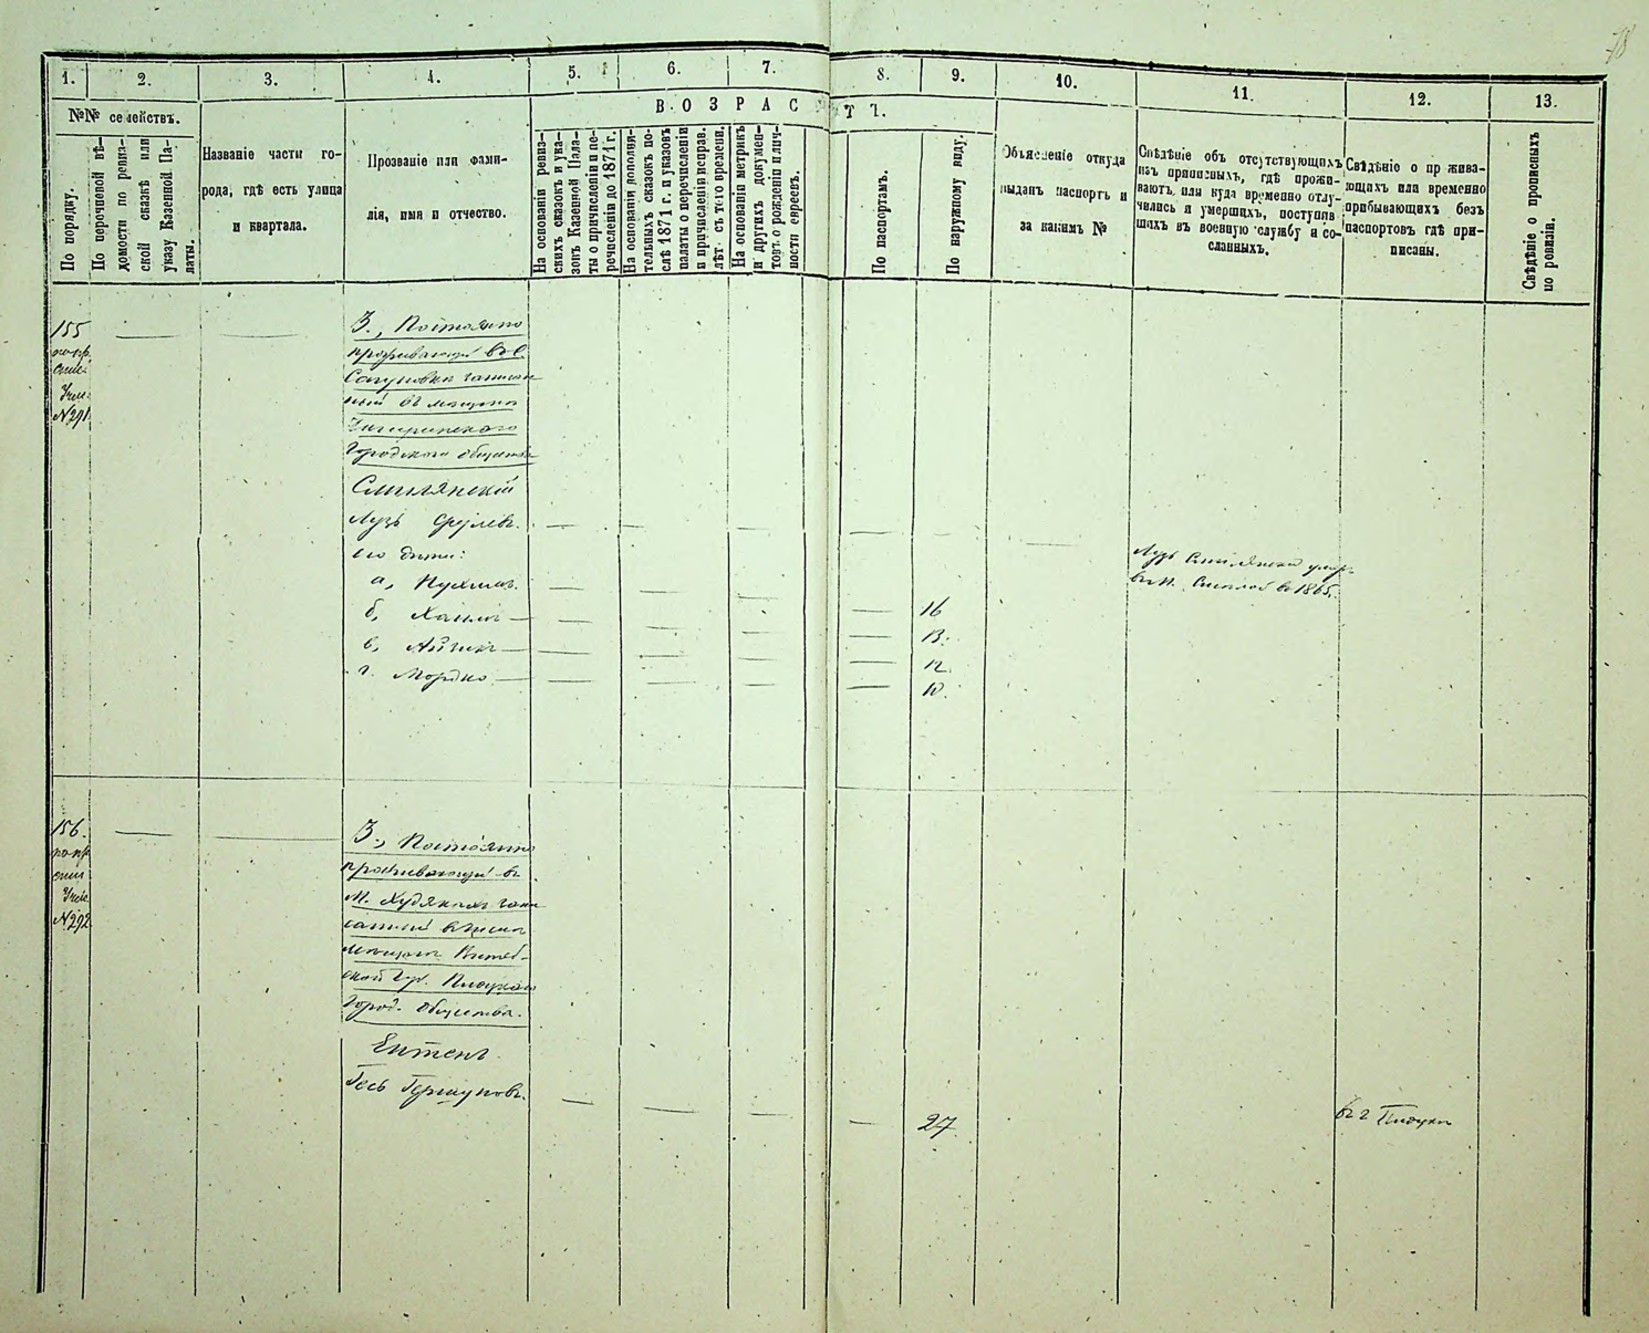 78
1.
2.
3.
4.
5.
6.
7.
8.
9.
10.
11.
12.
13.
№№ семействъ.
ВОЗРАСТЪ.
По порядку.
По перечновой вѣ-
домости по ревиз-
ской сказкѣ или
указу Казенной Па-
латы.
Названіе части го-
рода, гдѣ есть улица
и квартала.
Прозваніе или фами-
лія, имя и отчество.
На основаніи ревиз-
скихъ сказокъ и ука-
зовъ Казенной Пала-
ты о причисленіи и пе-
речисленіи до 1871 г.
На основаніи дополни-
тельныхъ сказокъ по-
слѣ 1871 г. и указовъ
палаты о перечисленіи
и причисленіи исправ.
лѣт. съ того времени.
На основаніи метрикъ
и другихъ докумен-
товъ о рожденіи и лич-
ности евреевъ.
По паспортамъ.
По наружному виду.
Объясненіе откуда
выданъ паспортъ и
за какимъ №
Свѣдѣніе объ отсутствующихъ
изъ приписныхъ, гдѣ прожи-
ваютъ или куда временно отлу-
чились и умершихъ, поступив
шихъ въ военную службу и со-
сланныхъ.
Свѣдѣніе о прожива-
ющихъ или временно
прибывающихъ безъ
паспортовъ гдѣ при-
писаны.
Свѣдѣніе о прописныхъ
по ревизіи.
155
№291.
3., Постоянно
проживающій въ с.
Сагуновка
ный въ мещане
Чигиринского
Городского общества
Смилянскій
Лузь Срулевъ.
его дѣти:
а,
б, Хаимъ — 16
в, Айзикъ — 13.
г. Мордко — 12.
10.
Лузь Смилянскій умер.
въ 1865.
156.
№292
3., Постоянно
проживающій въ
М. Худякахъ запи
санный
мещане Витеб-
ской Гу.
Город. общества.
Ентенъ
Гесь Гершуновъ.
27.
въ г